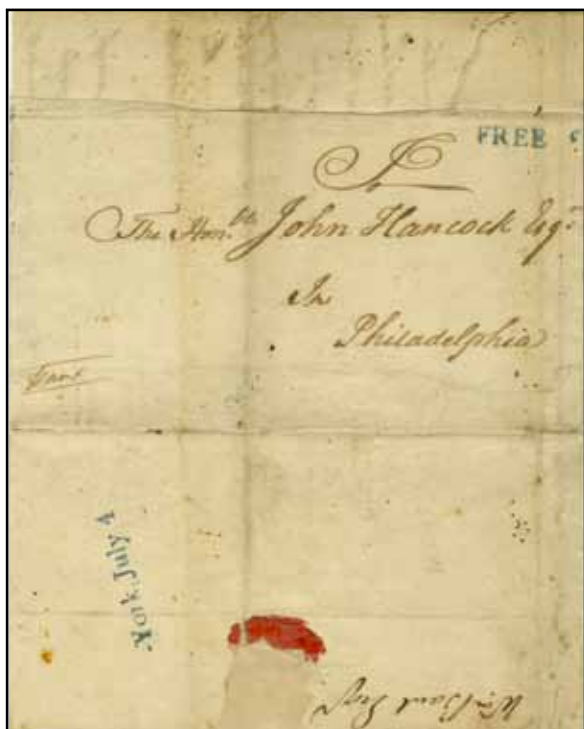 FREE
To
The Hon.ble John Hancock Esq.r
In
Philadelphia
York, July 4